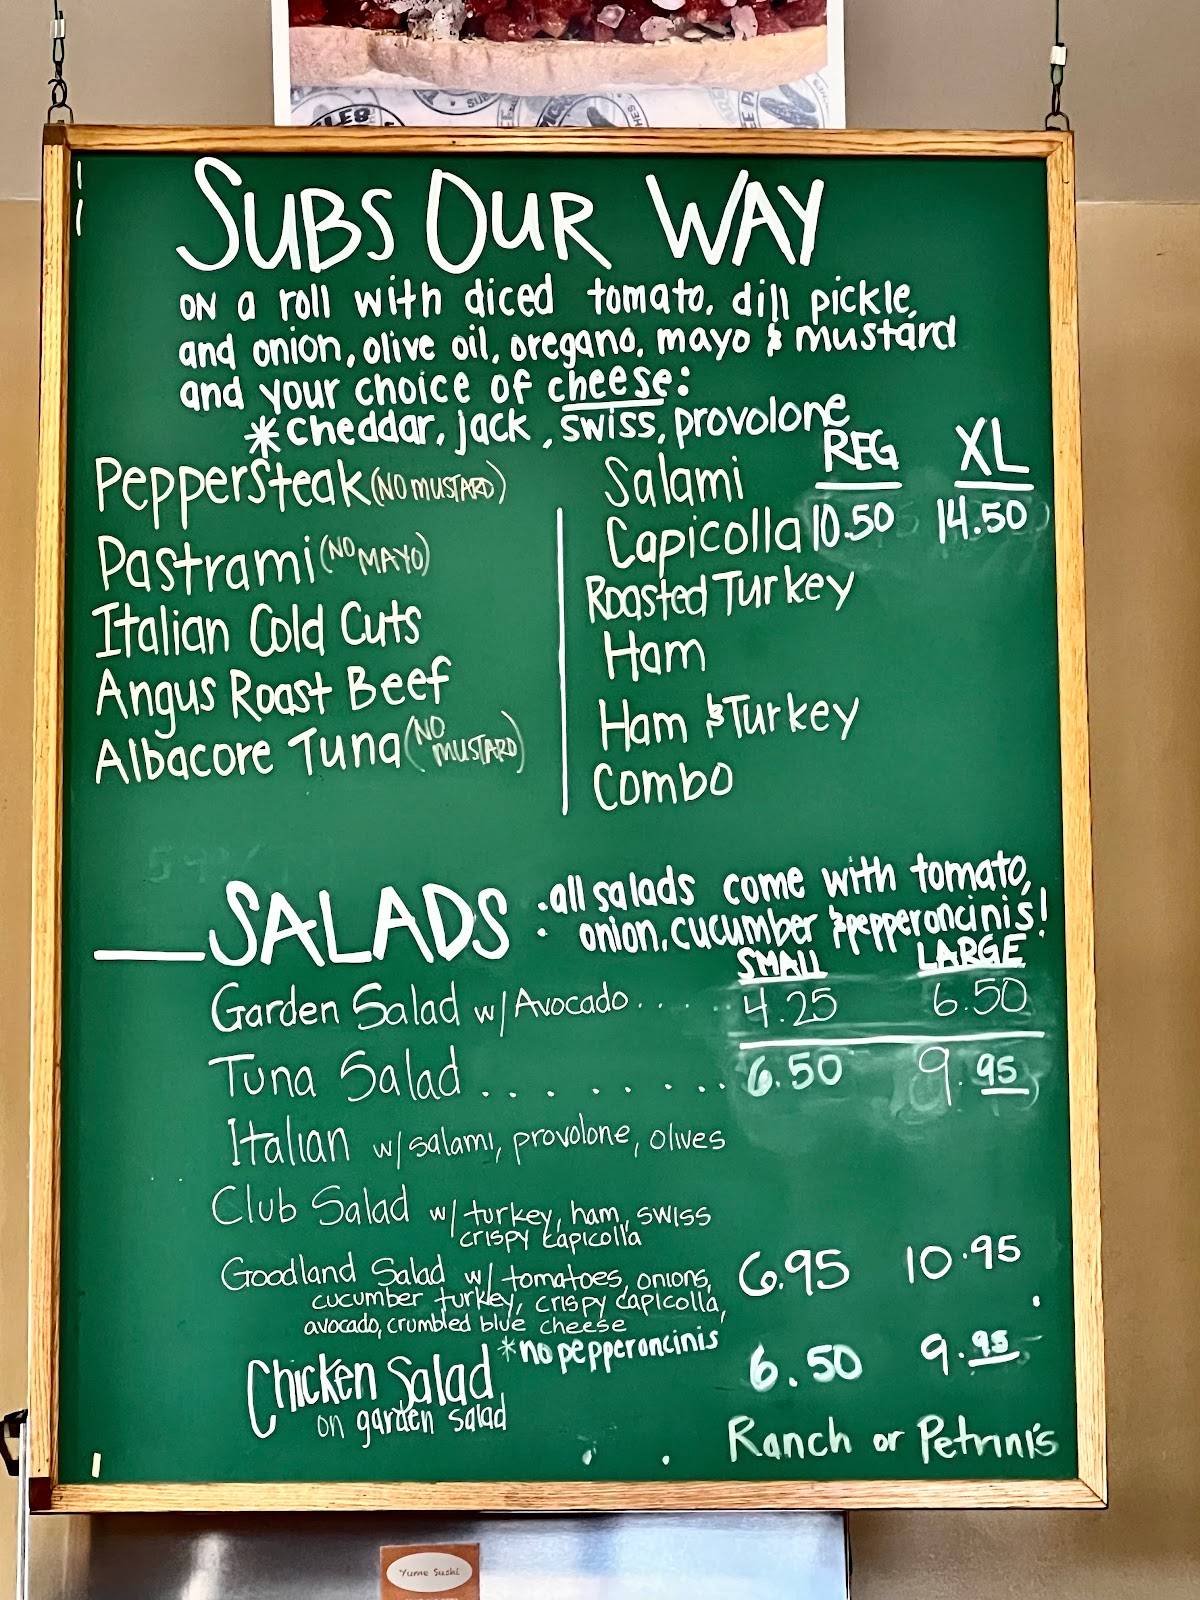 SUBS OUR WAY
ON a roll with diced tomato, dill pickle,
and onion, olive oil, oregano, mayo & mustard
and your choice of cheese:
*cheddar, jack, swiss, provolone
REG XL
10.50 14.50
PepperSteak (NO MUSTARD)
Pastrami (NO MAYO)
Italian Cold Cuts
Angus Roast Beef
Albacore Tuna (NO MUSTARD)
Salami
Capicolla
Roasted Turkey
Ham
Ham & Turkey
Combo
SALADS : all salads come with tomato,
onion, cucumber & pepperoncinis!
SMALL LARGE
Garden Salad w/ Avocado.... 4.25 6.50
Tuna Salad ......... 6.50 9.95
Italian w/ salami, provolone, olives
Club Salad w/ turkey, ham, swiss
crispy capicolla
Goodland Salad w/ tomatoes, onions, 6.95 10.95
cucumber turkey, crispy capicolla,
avocado, crumbled blue cheese
*no pepperoncinis
Chicken Salad 6.50 9.95
on garden salad
Ranch or Petrini's
Yume Sushi